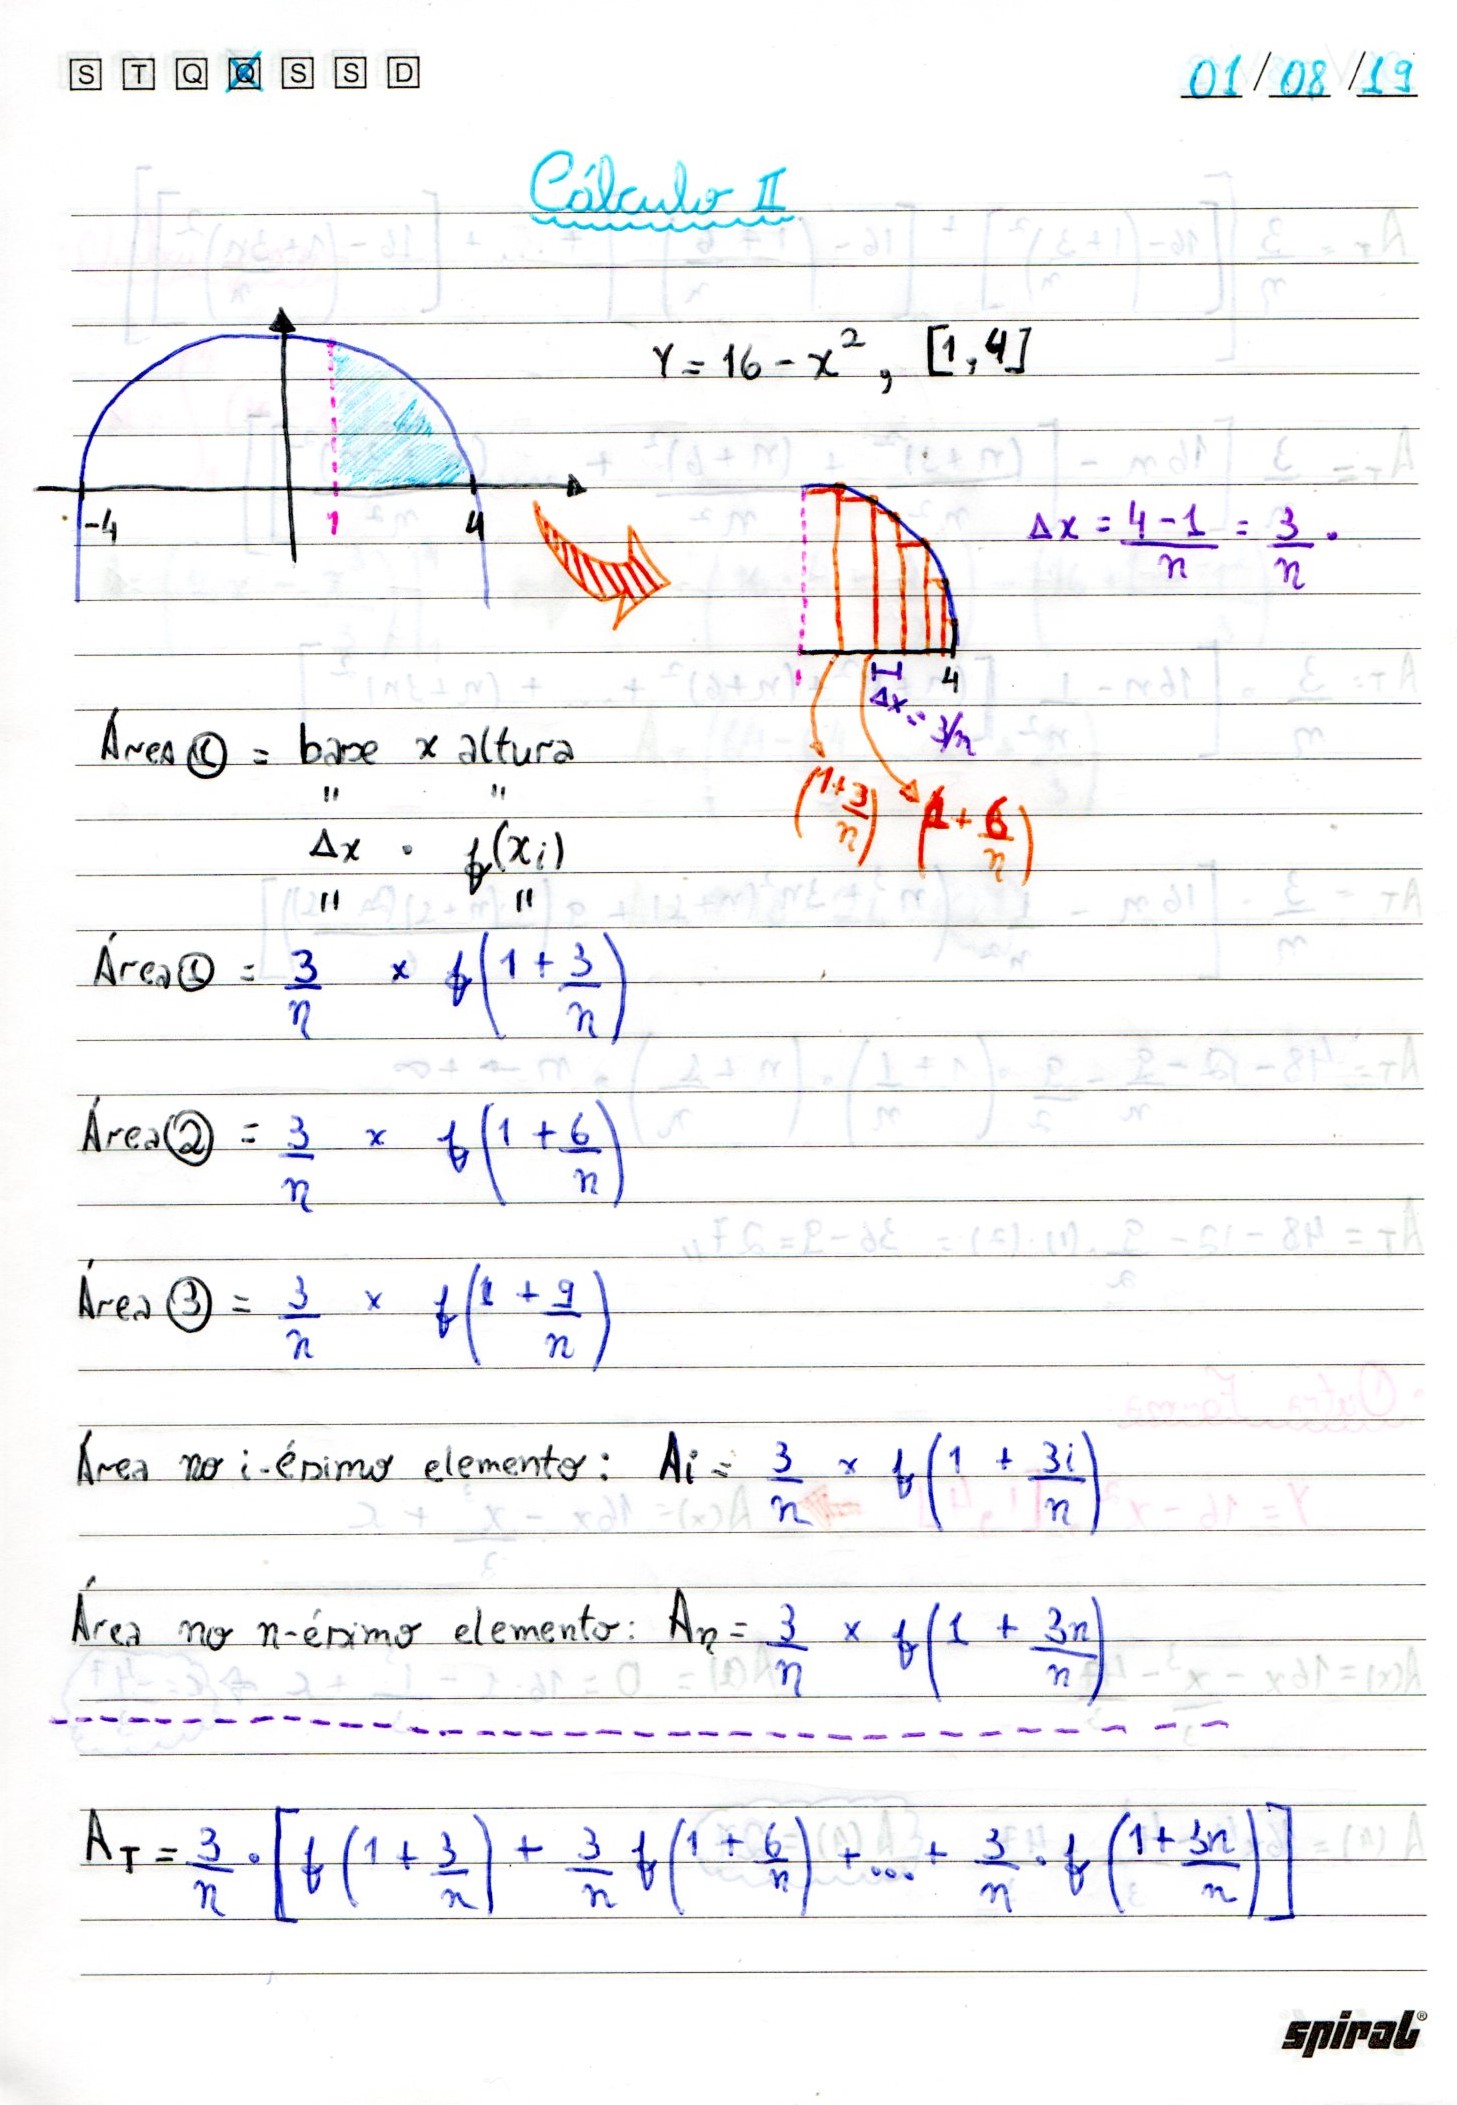 S T Q Q S S D 01/08/19
Cálculo II
Y = 16 - x², [1,4]
-4 1 4
Δx = (4-1)/n = 3/n .
1 4
Δx = 3/n
(1+3/n) (1+6/n)
Área ① = base x altura
" "
Δx . f(xi)
" "
Área ① = 3/n x f(1 + 3/n)
Área ② = 3/n x f(1 + 6/n)
Área ③ = 3/n x f(1 + 9/n)
Área no i-ésimo elemento: Ai = 3/n x f(1 + 3i/n)
Área no n-ésimo elemento: An = 3/n x f(1 + 3n/n)
A_T = 3/n . [f(1 + 3/n) + 3/n f(1 + 6/n) + ... + 3/n . f(1 + 3n/n)]
spiral®